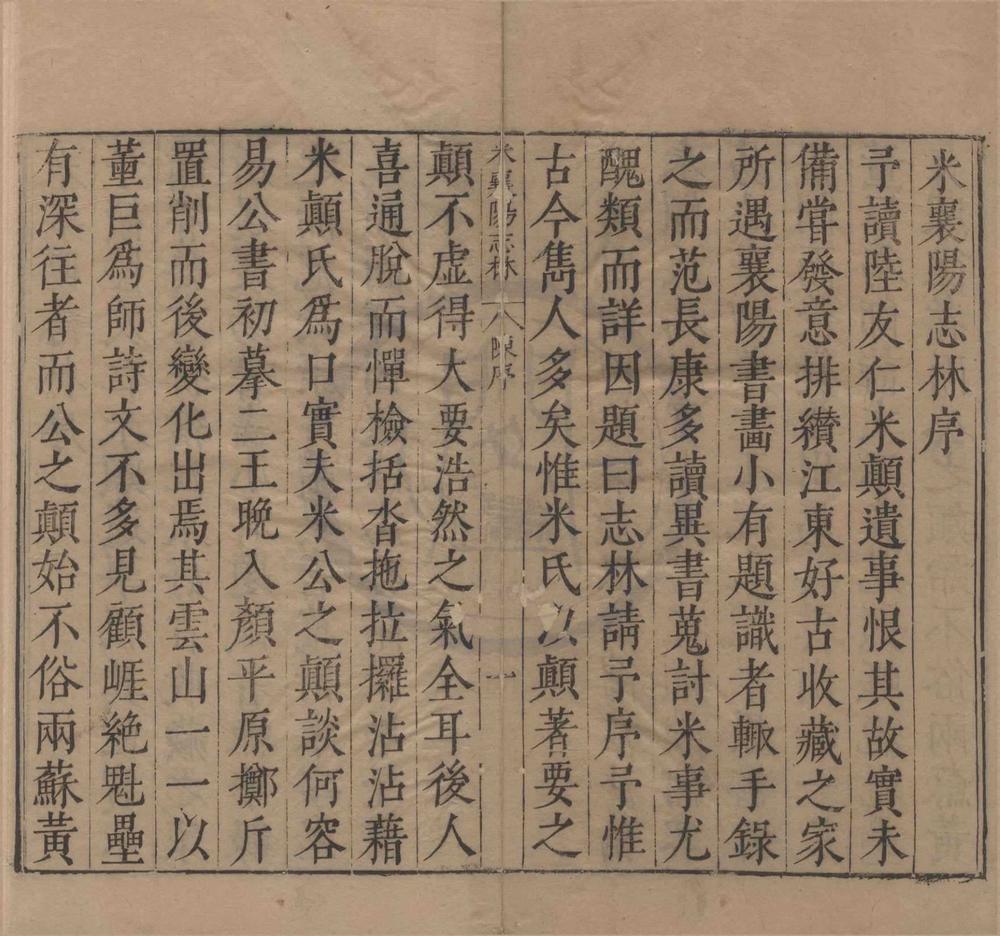 米襄陽志林序
予讀陸友仁米顛遺事恨其故實未
備嘗發意排纘江東好古收藏之家
所遇襄陽書畵小有題識者輙手錄
之而范長康多讀異書蒐討米事尤
醜類而詳因題曰志林請予序予惟
古今雋人多矣惟米氏以顛著要之
米襄陽志林 陳序 一
顛不虛得大要浩然之氣全耳後人
喜通脫而憚檢括沓拖拉攞沾沾藉
米顛氏爲口實夫米公之顛談何容
易公書初摹二王晚入顏平原擲斤
置削而後變化出焉其雲山一一以
董巨爲師詩文不多見顧崕絶魁壘
有深往者而公之顛始不俗兩蘇黃